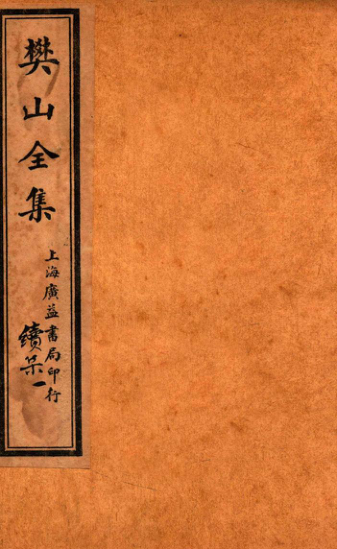 樊山全集
上海廣益書局印行
續集一